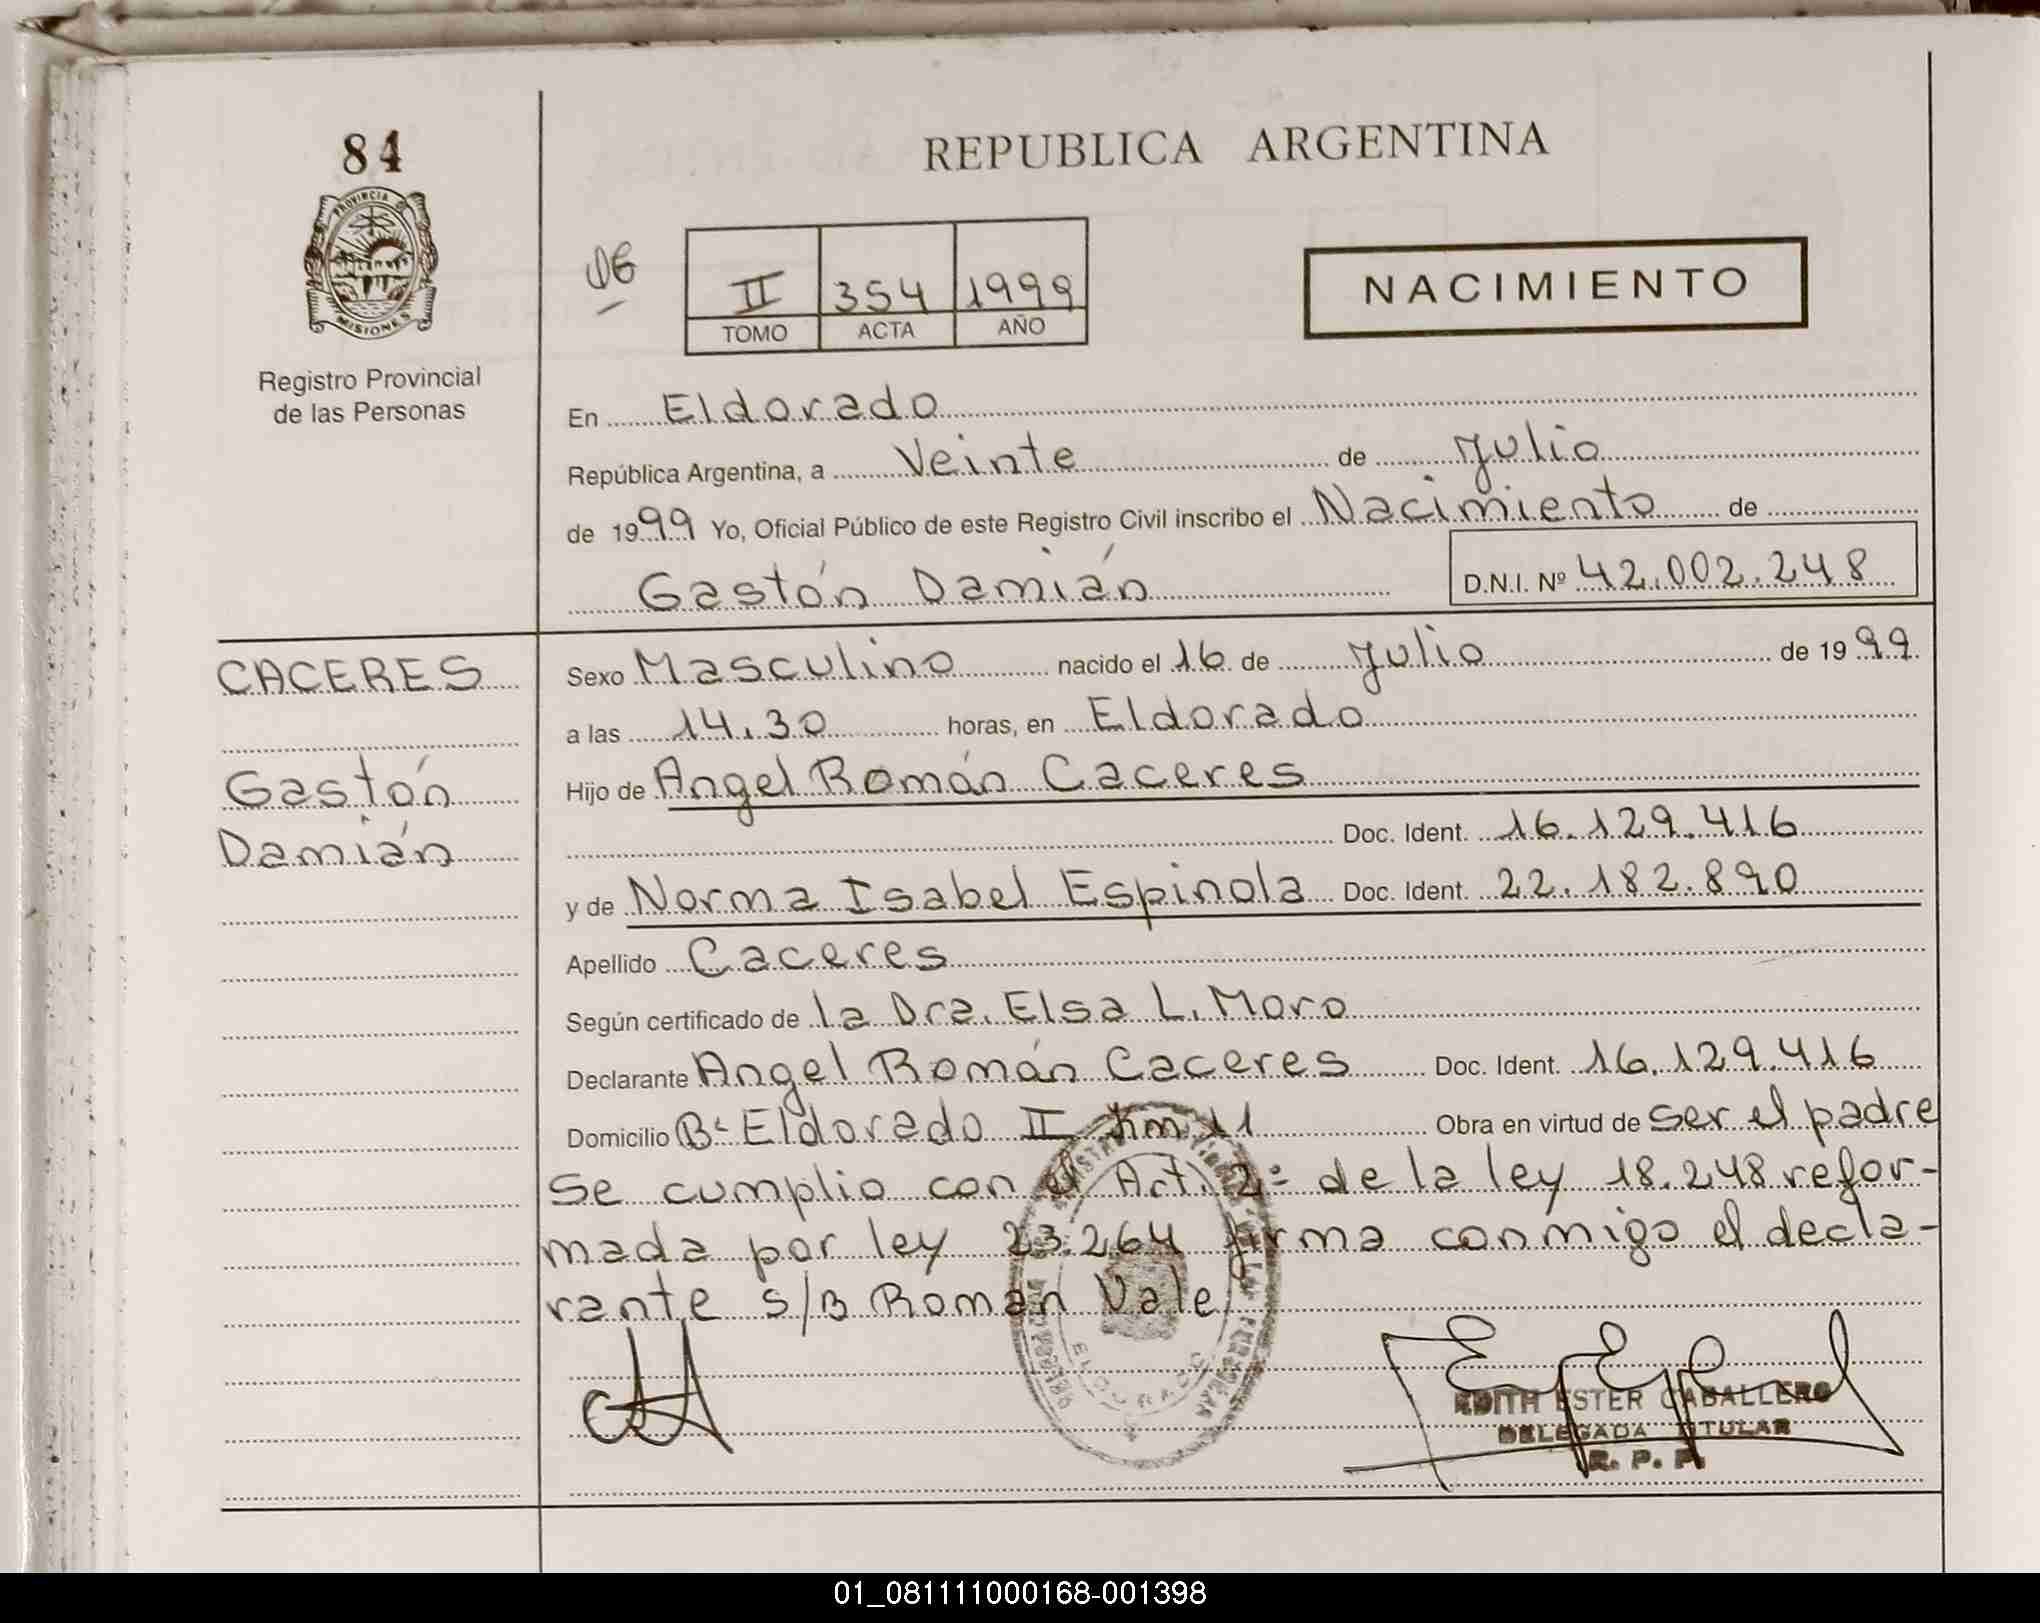 84
PROVINCIA DE
MISIONES
Registro Provincial
de las Personas
REPUBLICA ARGENTINA
II 354 1999
TOMO ACTA AÑO
NACIMIENTO
En Eldorado
República Argentina, a Veinte de Julio
de 1999 Yo, Oficial Público de este Registro Civil inscribo el Nacimiento de
Gastón Damián D.N.I. Nº 42.002.248
CACERES
Gastón
Damián
Sexo Masculino nacido el 16 de Julio de 1999
a las 14.30 horas, en Eldorado
Hijo de Angel Román Caceres
Doc. Ident. 16.129.416
y de Norma Isabel Espinola Doc. Ident. 22.182.890
Apellido Caceres
Según certificado de la Dra. Elsa L. Moro
Declarante Angel Román Caceres Doc. Ident. 16.129.416
Domicilio Bº Eldorado II km 11 Obra en virtud de ser el padre
Se cumplio con el Art. 2º de la ley 18.248 refor-
mada por ley 23.264 firma conmigo el decla-
rante s/B Román Vale
ELDORADO
EDITH ESTER CABALLERO
DELEGADA TITULAR
R. P. P.
01_081111000168-001398